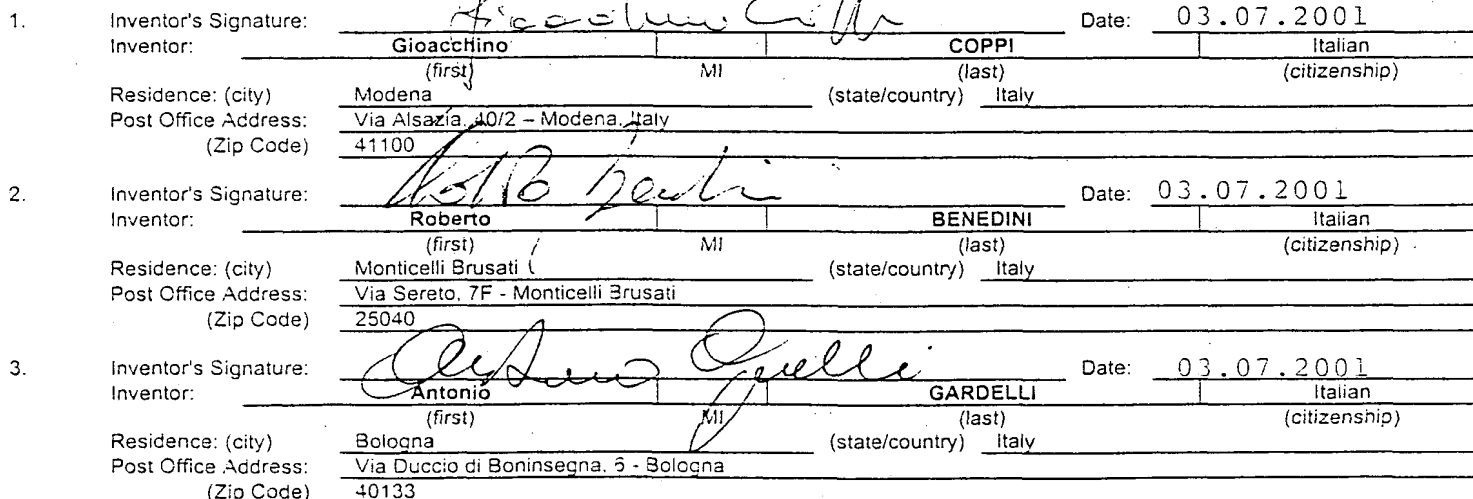 1. Inventor's Signature: Date: 03.07.2001
Inventor: Gioacchino COPPI Italian
(first) MI (last) (citizenship)
Residence: (city) Modena (state/country) Italy
Post Office Address: Via Alsazia, 40/2 – Modena, Italy
(Zip Code) 41100
2. Inventor's Signature: Date: 03.07.2001
Inventor: Roberto BENEDINI Italian
(first) MI (last) (citizenship)
Residence: (city) Monticelli Brusati (state/country) Italy
Post Office Address: Via Sereto, 7F - Monticelli Brusati
(Zip Code) 25040
3. Inventor's Signature: Date: 03.07.2001
Inventor: Antonio GARDELLI Italian
(first) MI (last) (citizenship)
Residence: (city) Bologna (state/country) Italy
Post Office Address: Via Duccio di Boninsegna, 6 - Bologna
(Zip Code) 40133